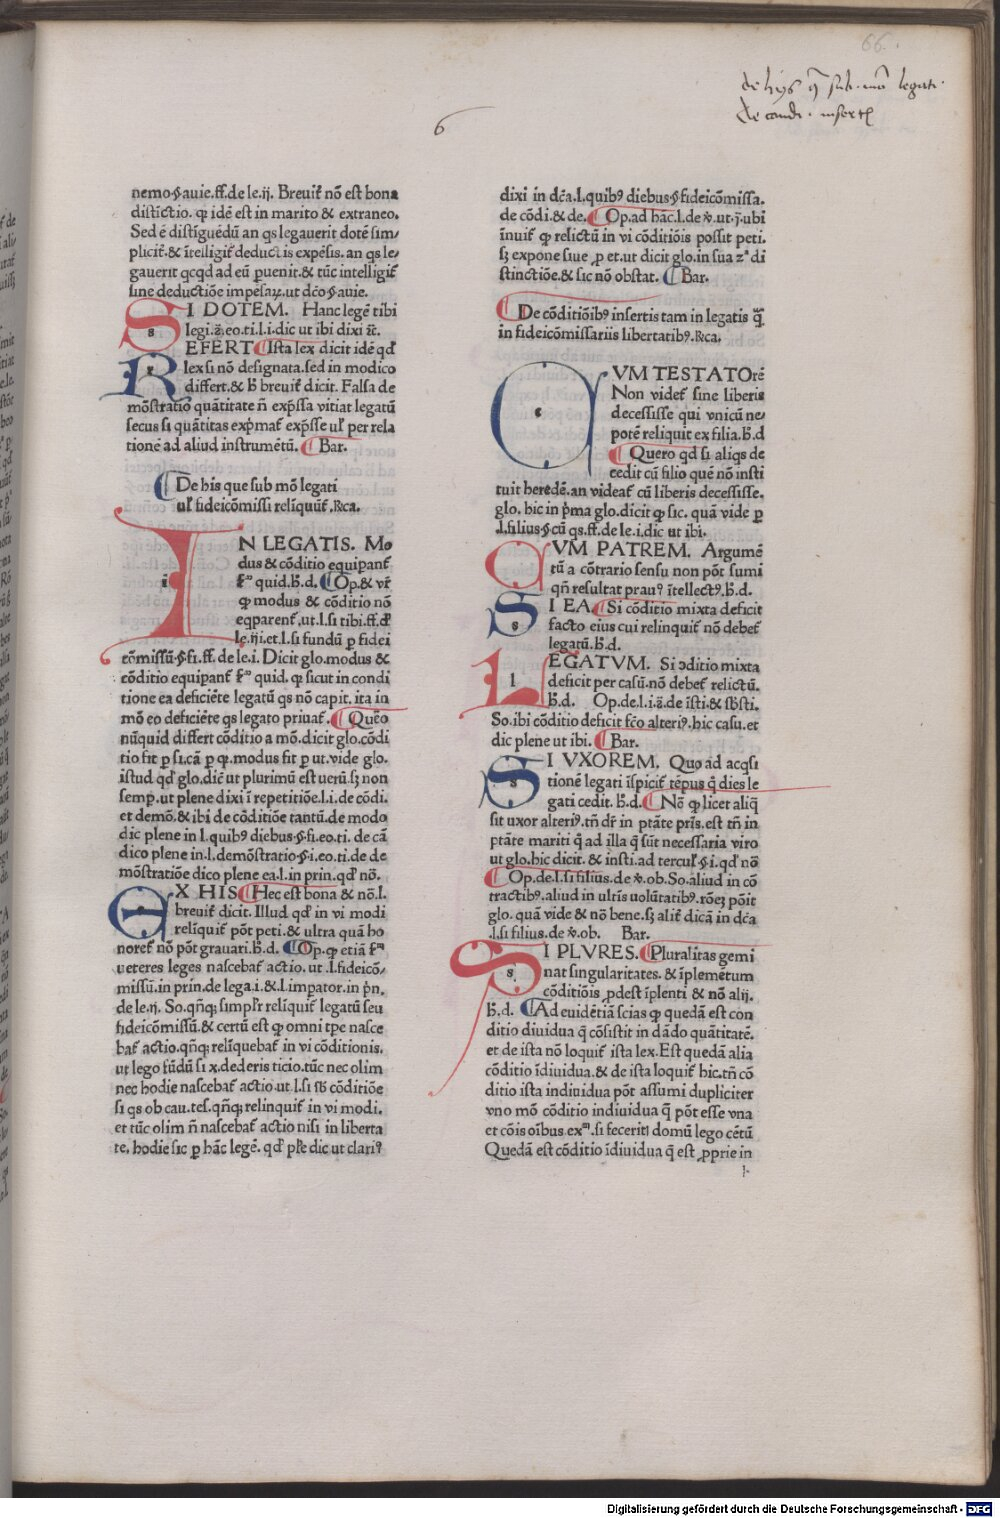 66.
de hijs q̄ sub. mō legati.
de condi. insertꝭ
6
nemo.§.auie.ff.de le.ij. Breuiť nō est bona
distīctio. ꝙ idē est in marito & extraneo.
Sed ē distīguēdū an qs legauerit dotē sim/
pliciť. & ītelligiť deductis expēsis. an qs le/
gauerit qcqd ad eū puenit. & tūc intelligiť
sine deductiōe impēsaꝝ. ut dc̄o.§.auie.
SI DOTEM. Hanc legē tibi
legi.z̄.eo.ti.l.i.dic ut ibi dixi īt̄.
REFERT Ista lex dicit idē qd̓
lex si nō designata. sed in modico
differt. & b̄ breuiť dicit. Falsa de
mōstratio quātitate n̄ exp̄ssa vitiat legatū
secus si quātitas exp̄mať exp̄sse ul̓ per rela
tionē ad aliud instrumētū. Bar.
De his que sub mō legati
ul̓ fideicōmissi reliquūť. Rca.
IN LEGATIS. Mo
dus & cōditio equipanť
ꝙ modus & cōditio nō
eqparenť. ut.l.si tibi.ff.d̓
le.iji. et.l.si fundū p fidei
cōmissū.§.fi.ff.de le.i. Dicit glo. modus &
tione ea deficiēte legatū qs nō capit. ita in
mō eo deficiēte qs legato priuať. Quēo
nūquid differt cōditio a mō. dicit glo. cōdi
tio fit p si. cā p ꝙ. modus fit p ut. vide glo.
istud qd̓ glo. dic̄ ut plurimū est uerū. sꝫ non
semp. ut plene dixi ī repetitiōe.l.i.de cōdi.
et demō. & ibi de cōditiōe tantū. de modo
dic plene in l. quibꝰ diebus.§.fi.eo.ti. de cā
dico plene in.l.demōstratio.§.i.eo.ti.de de
mōstratiōe dico plene ea.l. in prin. qd̓ nō.
EX HIS Hec est bona & nō.l.
breuiť dicit. Illud qd̓ in vi modi
relīquiť pōt peti. & ultra quā ho
ueteres leges nascebať actio. ut .l. fideicō/
missū. in prin. de lega.i. & l. impator. in p̄n.
de le.ij. So. qn̄qꝫ simplr̓ relīquiť legatū seu
fideicōmissū. & certū est ꝙ omni tpe nasce
bať actio. qn̄qꝫ relīquebať in vi cōditionis.
ut lego fūdū si x. dederis ticio. tūc nec olim
nec hodie nascebať actio. ut .l. si sb̄ cōditiōe
si qs ob cau. tes̄. qn̄qꝫ relinquiť in vi modi.
et tūc olim n̄ nascebať actio nisi in liberta
te. hodie sic p hāc legē. qd̓ pl̓e dic ut clariꝰ
dixi in dc̄a.l. quibꝰ diebus.§. fideicōmissa.
de cōdi. & de. Op. ad hāc.l. de ꝟ. ut.j. ubi
īnuiť ꝙ relictū in vi cōditiōis possit peti.
sꝫ expone siue ꝓ et. ut dicit glo. in sua z.ᵃ di
stinctiōe. & sic nō obstat. Bar.
De cōditiōibꝰ insertis tam in legatis q̄
in fideicōmissariis libertatibꝰ. Rca.
CVM TESTATOrē
Non videť sine liberis
decessisse qui vnicū ne/
potē reliquit ex filia. b̄.d
Quero qd si aliqs de
cedit cū filio quē nō insti
tuit heredē. an videať cū liberis decessisse.
glo. hic in p̄ma glo. dicit ꝙ sic. quā vide p
.l. filius.§. cū qs. ff. de le.i. dic ut ibi.
CVM PATREM. Argumē
tū a cōtrario sensu non pōt sumi
qn̄ resultat prauꝰ ītellectꝰ. b̄.d.
SI EA. Si cōditio mixta deficit
facto eius cui relinquiť nō debeť
legatū. b̄.d.
LEGATVM. Si ɔditio mixta
deficit per casū. nō debeť relictū.
b̄.d. Op.de.l.i.z̄.de īsti.& sb̄sti.
So. ibi cōditio deficit fc̄o alteriꝰ. hic casu. et
dic plene ut ibi. Bar.
SI VXOREM. Quo ad acqsi
tionē legati īspiciť tēpus q̄ dies le
gati cedit. b̄.d. Nō ꝙ licet aliq̄
sit uxor alteriꝰ. tn̄ dr̄ in ptāte pr̄is. est tn̄ in
ptāte mariti q̄ ad illa q̄ sūt necessaria viro
ut glo. hic dicit. & insti. ad terculꝰ.§.i. qd̓ nō
Op. de.l. si filius. de ꝟ.ob. So. aliud in cō
tractibꝰ. aliud in ultīs uolūtatibꝰ. rōeꝫ pōit
glo. quā vide & nō bene. sꝫ aliť dicā in dc̄a
.l. si filius. de ꝟ.ob. Bar.
SI PLVRES. Pluralitas gemi
nat singularitates. & īplemētum
cōditiōis ꝓdest īplenti & nō alij.
b̄.d. Ad euidētiā scias ꝙ quedā est con
ditio diuidua q̄ cōsistit in dādo quātitatē.
et de ista nō loquiť ista lex. Est quedā alia
cōditio īdiuidua. & de ista loquiť hic. tn̄ cō
ditio ista indiuidua pōt assumi dupliciter
vno mō cōditio indiuidua q̄ pōt esse vna
et cōis oībus. exᵐ. si feceritꝭ domū lego cētū
Quedā est cōditio īdiuidua q̄ est ꝓprie in
Digitalisierung gefördert durch die Deutsche Forschungsgemeinschaft - DFG